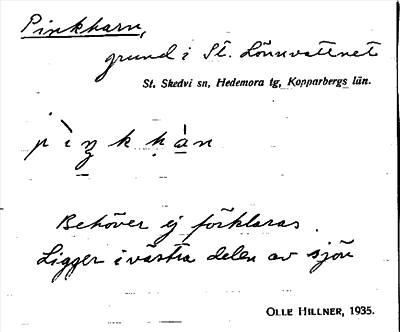 Pinkharn,
grund i St. Lönnvattnet
St. Skedvi sn, Hedemora tg, Kopparbergs län.
Behöver ej förklaras.
Ligger i västra delen av sjön
OLLE HILLNER, 1935.